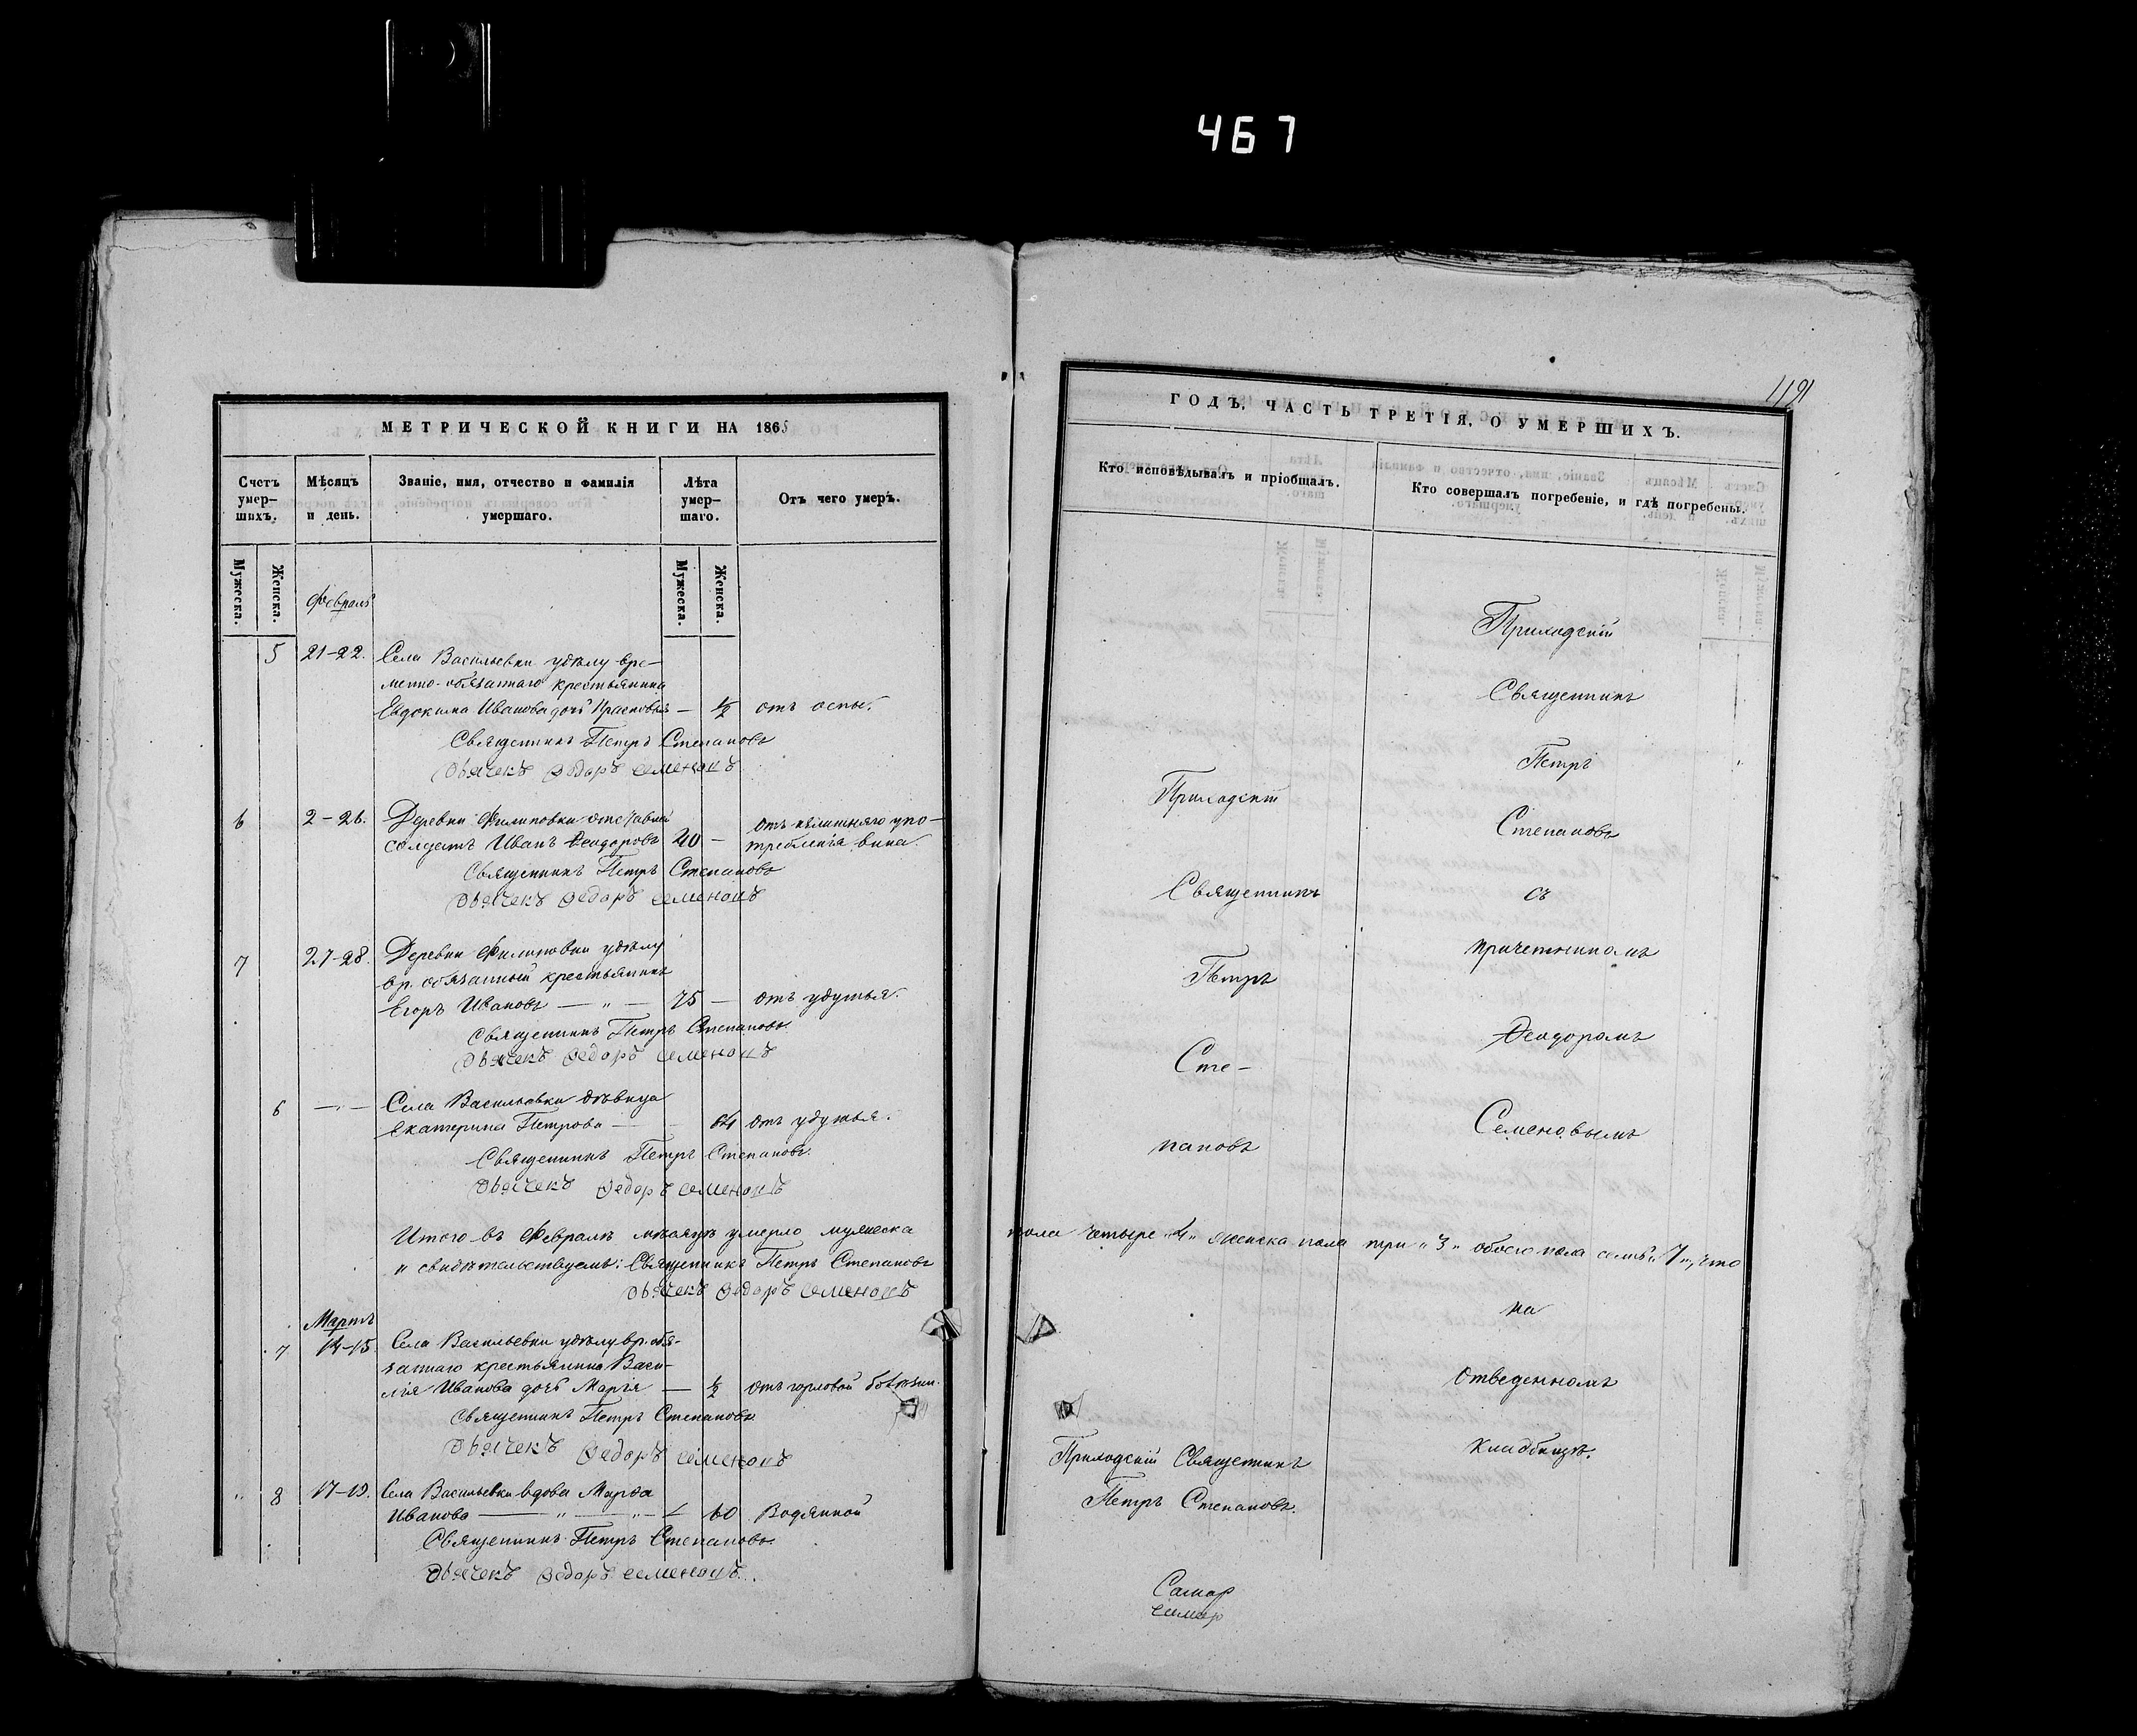 467
МЕТРИЧЕСКОЙ КНИГИ НА 1865
Счетъ умер-шихъ.
Мѣсяцъ и день.
Званіе, имя, отчество и фамилія умершаго.
Лѣта умер-шаго.
Отъ чего умеръ.
Мужеска.
Женска.
Мужеска.
Женска.
Февраль
5 21-22. Села Васильевки удѣлу вре-
менно-обязаннаго крестьянина
Евдокима Иванова дочь Прасковья — ½ отъ оспы.
Священникъ Петръ Степановъ
Дьячекъ Федоръ Семеновъ
6 2-26. Деревни Филиповки отставной
солдатъ Иванъ Ѳеодоровъ 40 — отъ излишняго упо-
требленія вина.
Священникъ Петръ Степановъ
Дьячекъ Федоръ Семеновъ
7 27-28. Деревни Филиповки удѣлу
вр. обязанный крестьянинъ
Егоръ Ивановъ — „ — 75 — отъ удушья.
Священникъ Петръ Степановъ.
Дьячекъ Федоръ Семеновъ
6 —„— Села Васильевки дѣвица
Екатерина Петрова — 64 отъ удушья.
Священникъ Петръ Степановъ.
Дьячекъ Федоръ Семеновъ
Итого въ Февралѣ мѣсяцѣ умерло мужеска
и свидѣтельствуемъ: Священникъ Петръ Степановъ
Дьячекъ Федоръ Семеновъ
Мартъ
7 14-15 Села Васильевки удѣлу вр. обя-
заннаго крестьянина Васи-
лія Иванова дочь Марія — ½ отъ горловой болѣзни.
Священникъ Петръ Степановъ
Дьячекъ Федоръ Семеновъ
„ 8 17-19. Села Васильевки вдова Марѳа
Иванова — „ — „ — 60 Водянной
Священникъ Петръ Степановъ.
Дьячекъ Федоръ Семеновъ.
1191
ГОДЪ. ЧАСТЬ ТРЕТІЯ, О УМЕРШИХЪ.
Кто исповѣдывалъ и пріобщалъ.
Кто совершалъ погребеніе, и гдѣ погребены.
Приходскій
Священникъ
Петръ
Сте-
пановъ
Приходскій
Священникъ
Петръ
Степановъ
съ
причетникомъ
Ѳеодоромъ
Семеновымъ
пола четыре „4„ женска пола три „3„ обоего пола семь „7„, что
на
отведенномъ
кладбищѣ.
Приходскій Священникъ
Петръ Степановъ.
Самар
Самар